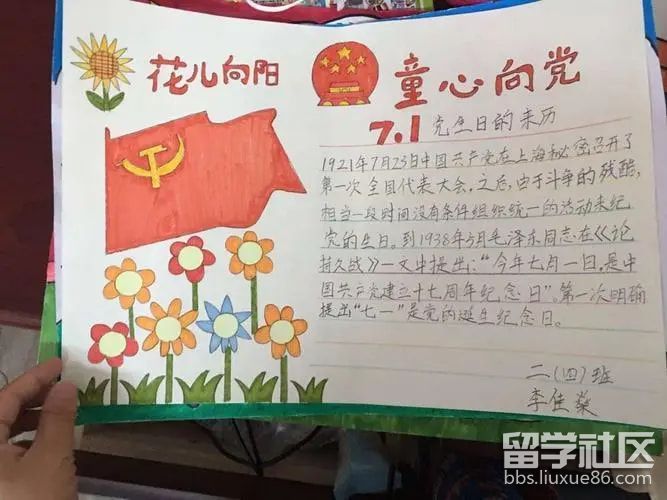 花儿向阳
童心向党
7.1 党生日的来历
1921年7月23日中国共产党在上海秘密召开了
第一次全国代表大会。之后,由于斗争的残酷,
相当一段时间没有条件组织统一的活动来纪
党的生日。到1938年5月毛泽东同志在《论
持久战》一文中提出:“今年七月一日,是中
国共产党建立十七周年纪念日”。第一次明确
提出“七一”是党的诞生纪念日。
二(四)班
李佳燊
留学社区
bbs.liuxue86.com